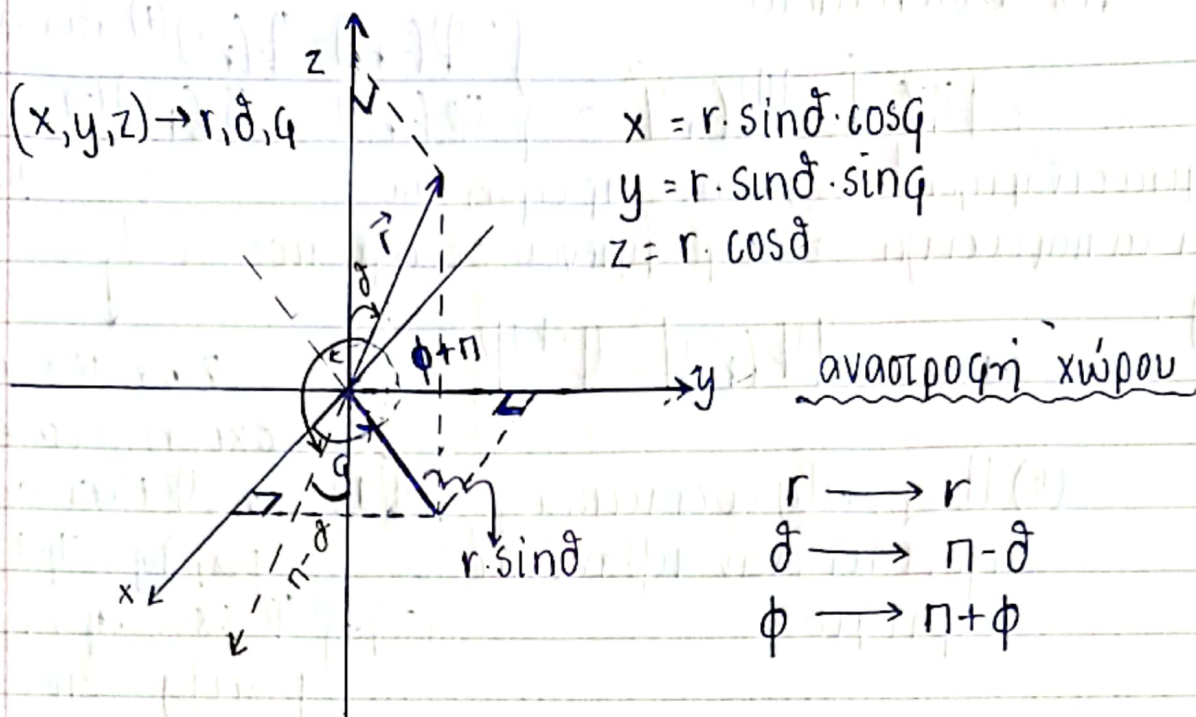 z
(x,y,z)→r,ϑ,φ
x = r·sinϑ·cosφ
y = r·sinϑ·sinφ
z = r·cosϑ
r⃗
ϑ
φ+π
y
αναστροφή χώρου
φ
r → r
π-ϑ
r·sinϑ
ϑ → π-ϑ
x
ϕ → π+ϕ